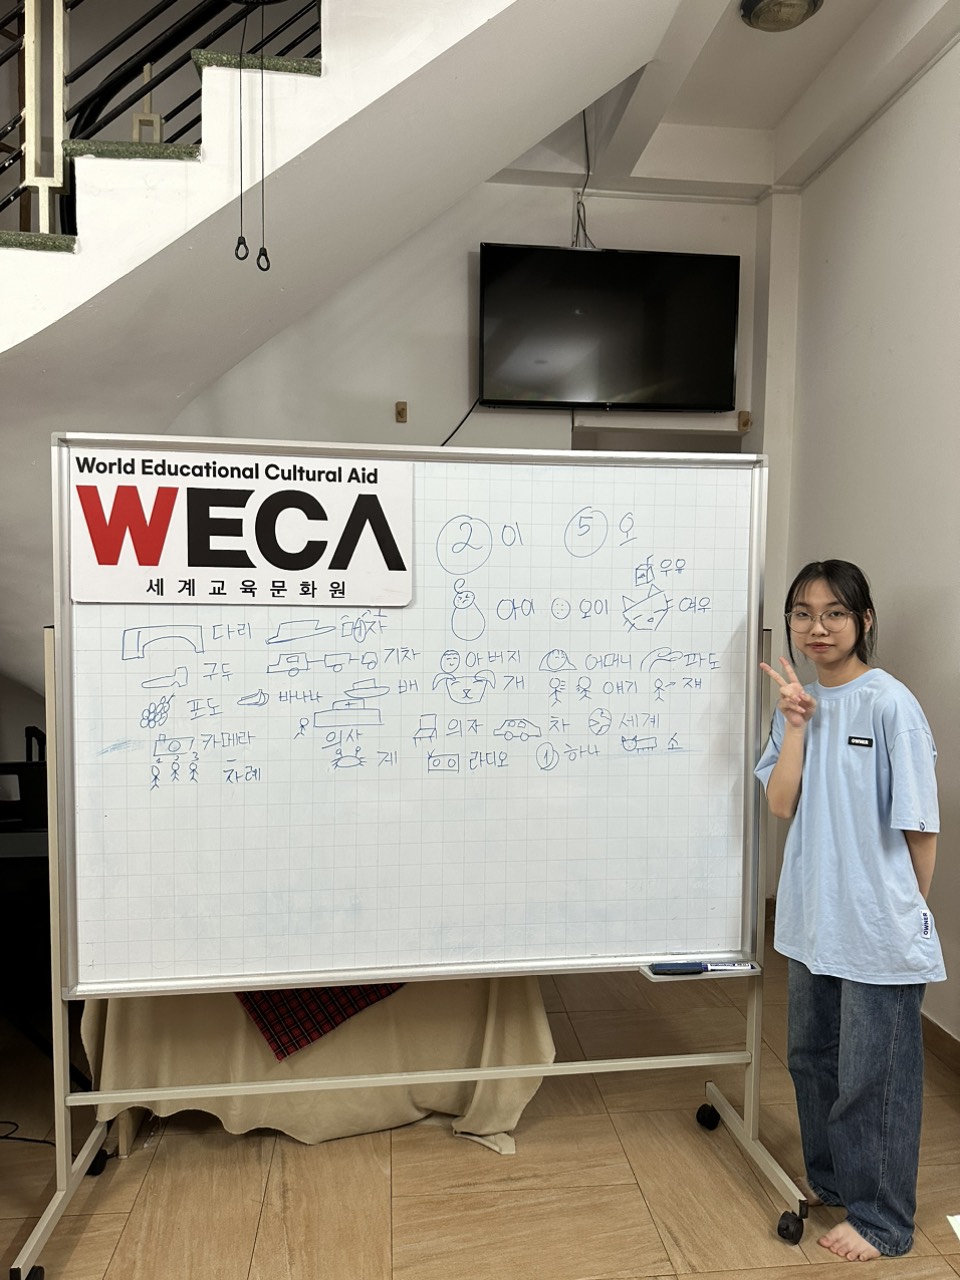 World Educational Cultural Aid
WECA
세계교육문화원
2 이 5 오
우유
아이 오이 여우
다리 모자
구두 기차 아버지 어머니 파도
포도 바나나 배 개 얘기 쟤
카메라 의사 의자 차 세계
차례 게 라디오 1 하나 소
OWNER
OWNER